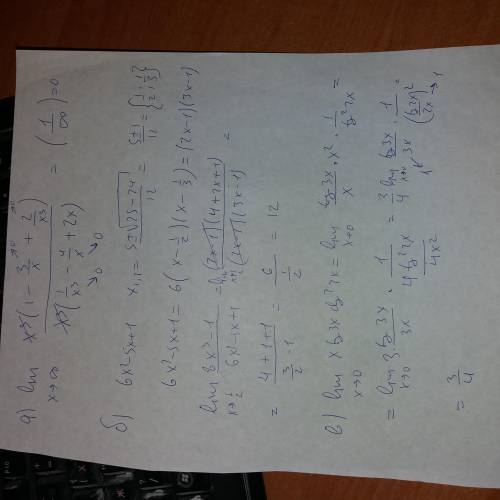 а) lim x→∞ x³(1 - 3/x + 2/x³) / x³(1/x³ - 4/x + 2x) = (1/∞) = 0
б) 6x²-5x+1 x₁,₂ = (5±√(25-24))/12 = (5±1)/12 = {1/2; 1/3}
6x²-5x+1 = 6(x-1/2)(x-1/3) = (2x-1)(3x-1)
lim x→1/2 (8x³-1)/(6x²-5x+1) = lim x→1/2 (2x-1)(4+2x+1)/(2x-1)(3x-1) =
= (4+1+1)/(3/2 - 1) = 6/(1/2) = 12
в) lim x→0 x tg3x ctg²2x = lim x→0 tg3x/x · x² · 1/tg²2x =
= lim x→0 3 tg3x/3x · 1/(4tg²2x/4x²) = 3/4 lim x→0 tg3x/3x · 1/(tg2x/2x)² =
= 3/4